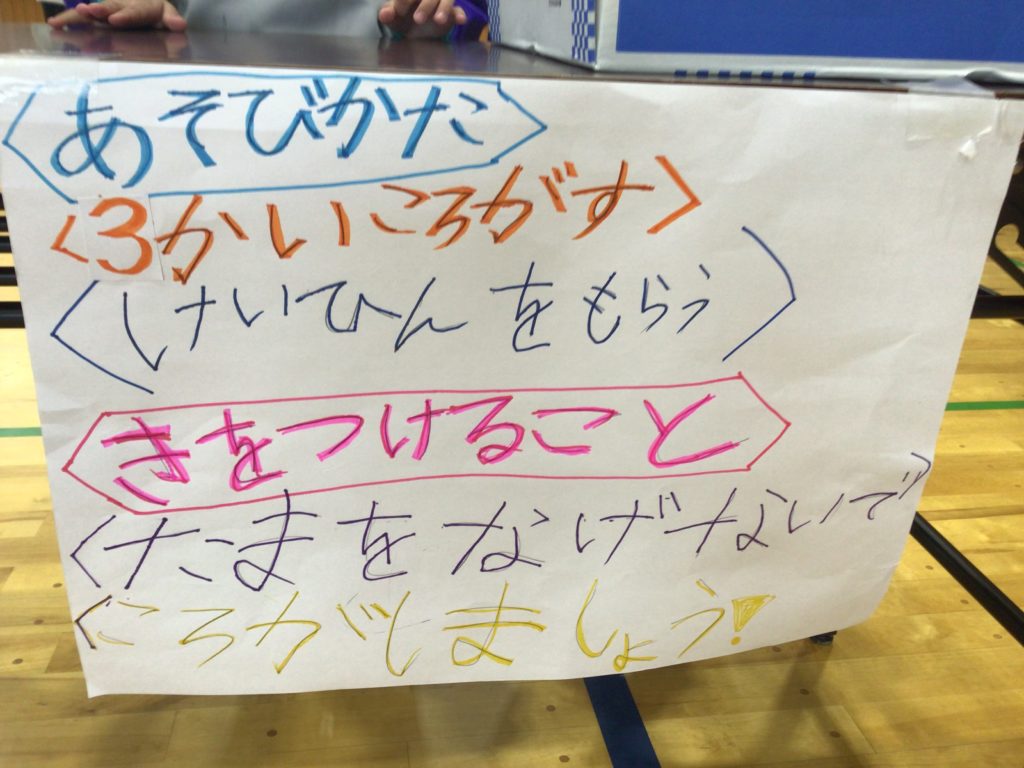 あそびかた
〈3かいころがす〉
〈けいひんをもらう〉
きをつけること
〈たまをなげないで〉
〈ころがしましょう!